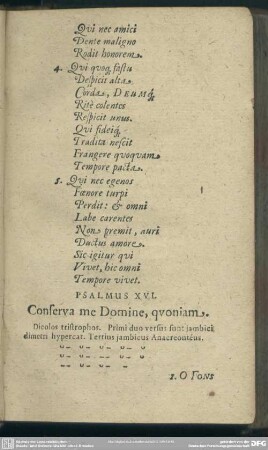 Qvi nec amici
Dente maligno
Rodit honorem.
4. Qvi quoq; fastu
Despicit alta
Corda, DEUMq́;
Ritè colentes
Respicit unus.
Qvi fideiq́;
Tradita nescit
Frangere qvoqvam
Tempore pacta.
5. Qvi nec egenos
Fœnore turpi
Perdit: & omni
Labe carentes
Non premit, auri
Ductus amore.
Sic igitur qvi
Vivet, hic omni
Tempore vivet.
PSALMUS XVI.
Conserva me Domine, qvoniam.
Dicolos tristrophos. Primi duo versus sunt jambici
dimetri hypercat. Tertius jambicus Anacreontéus.
1. O Fons